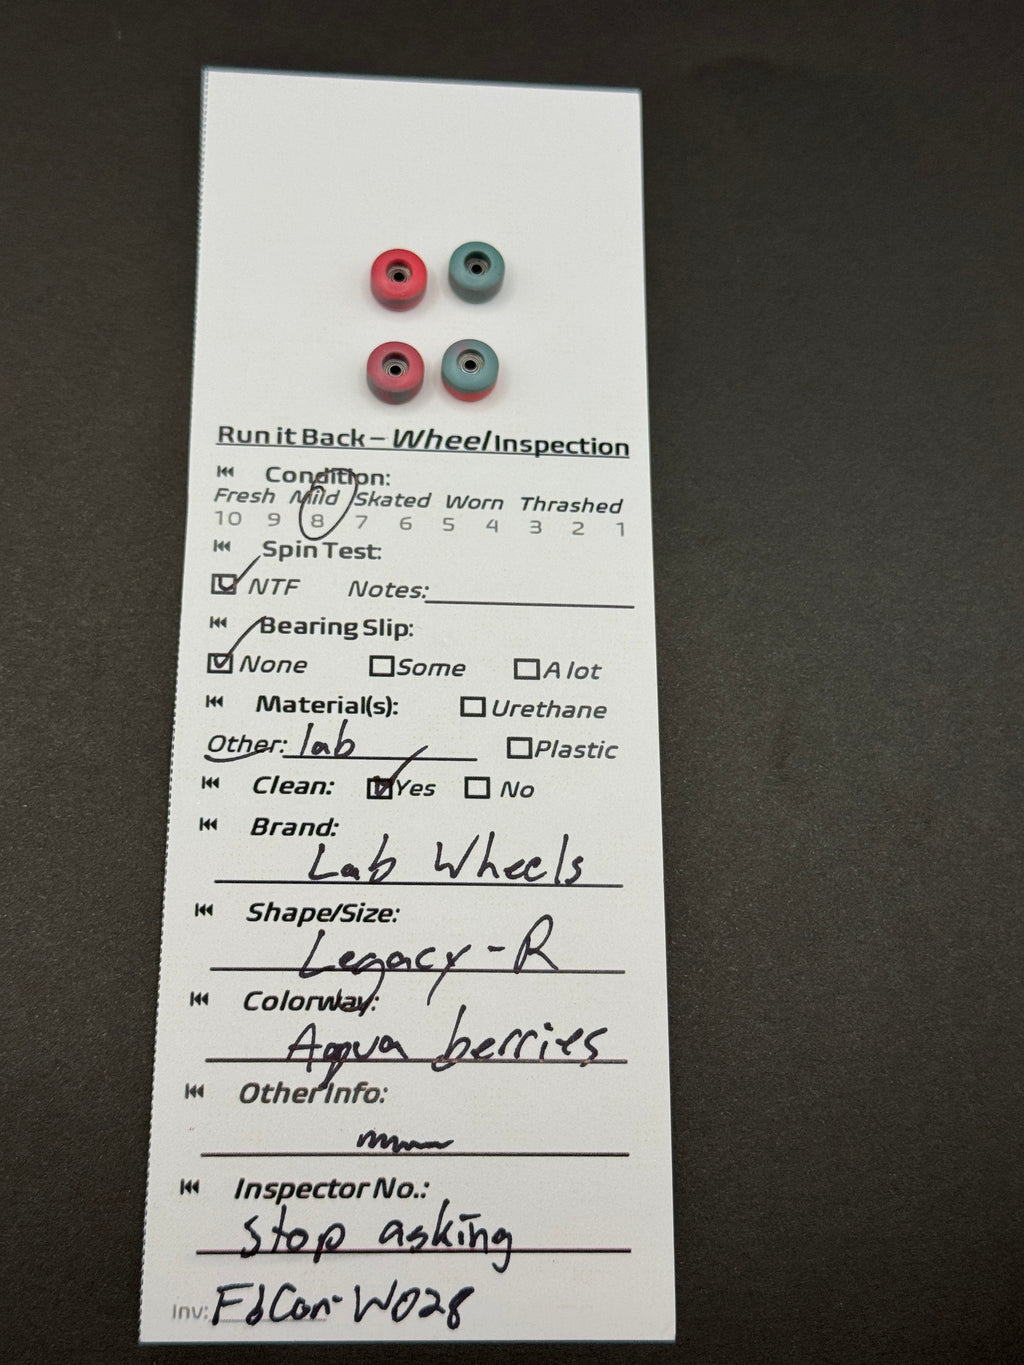 Run it Back – Wheel Inspection
Condition:
Fresh Mild Skated Worn Thrashed
10 9 8 7 6 5 4 3 2 1
Spin Test:
NTF Notes:
Bearing Slip:
None Some A lot
Material(s): Urethane
Other: lab Plastic
Clean: Yes No
Brand:
Lab Wheels
Shape/Size:
Legacy-R
Colorway:
Aqua berries
Other Info:
Inspector No.:
Stop asking
Inv: FbCon-W028